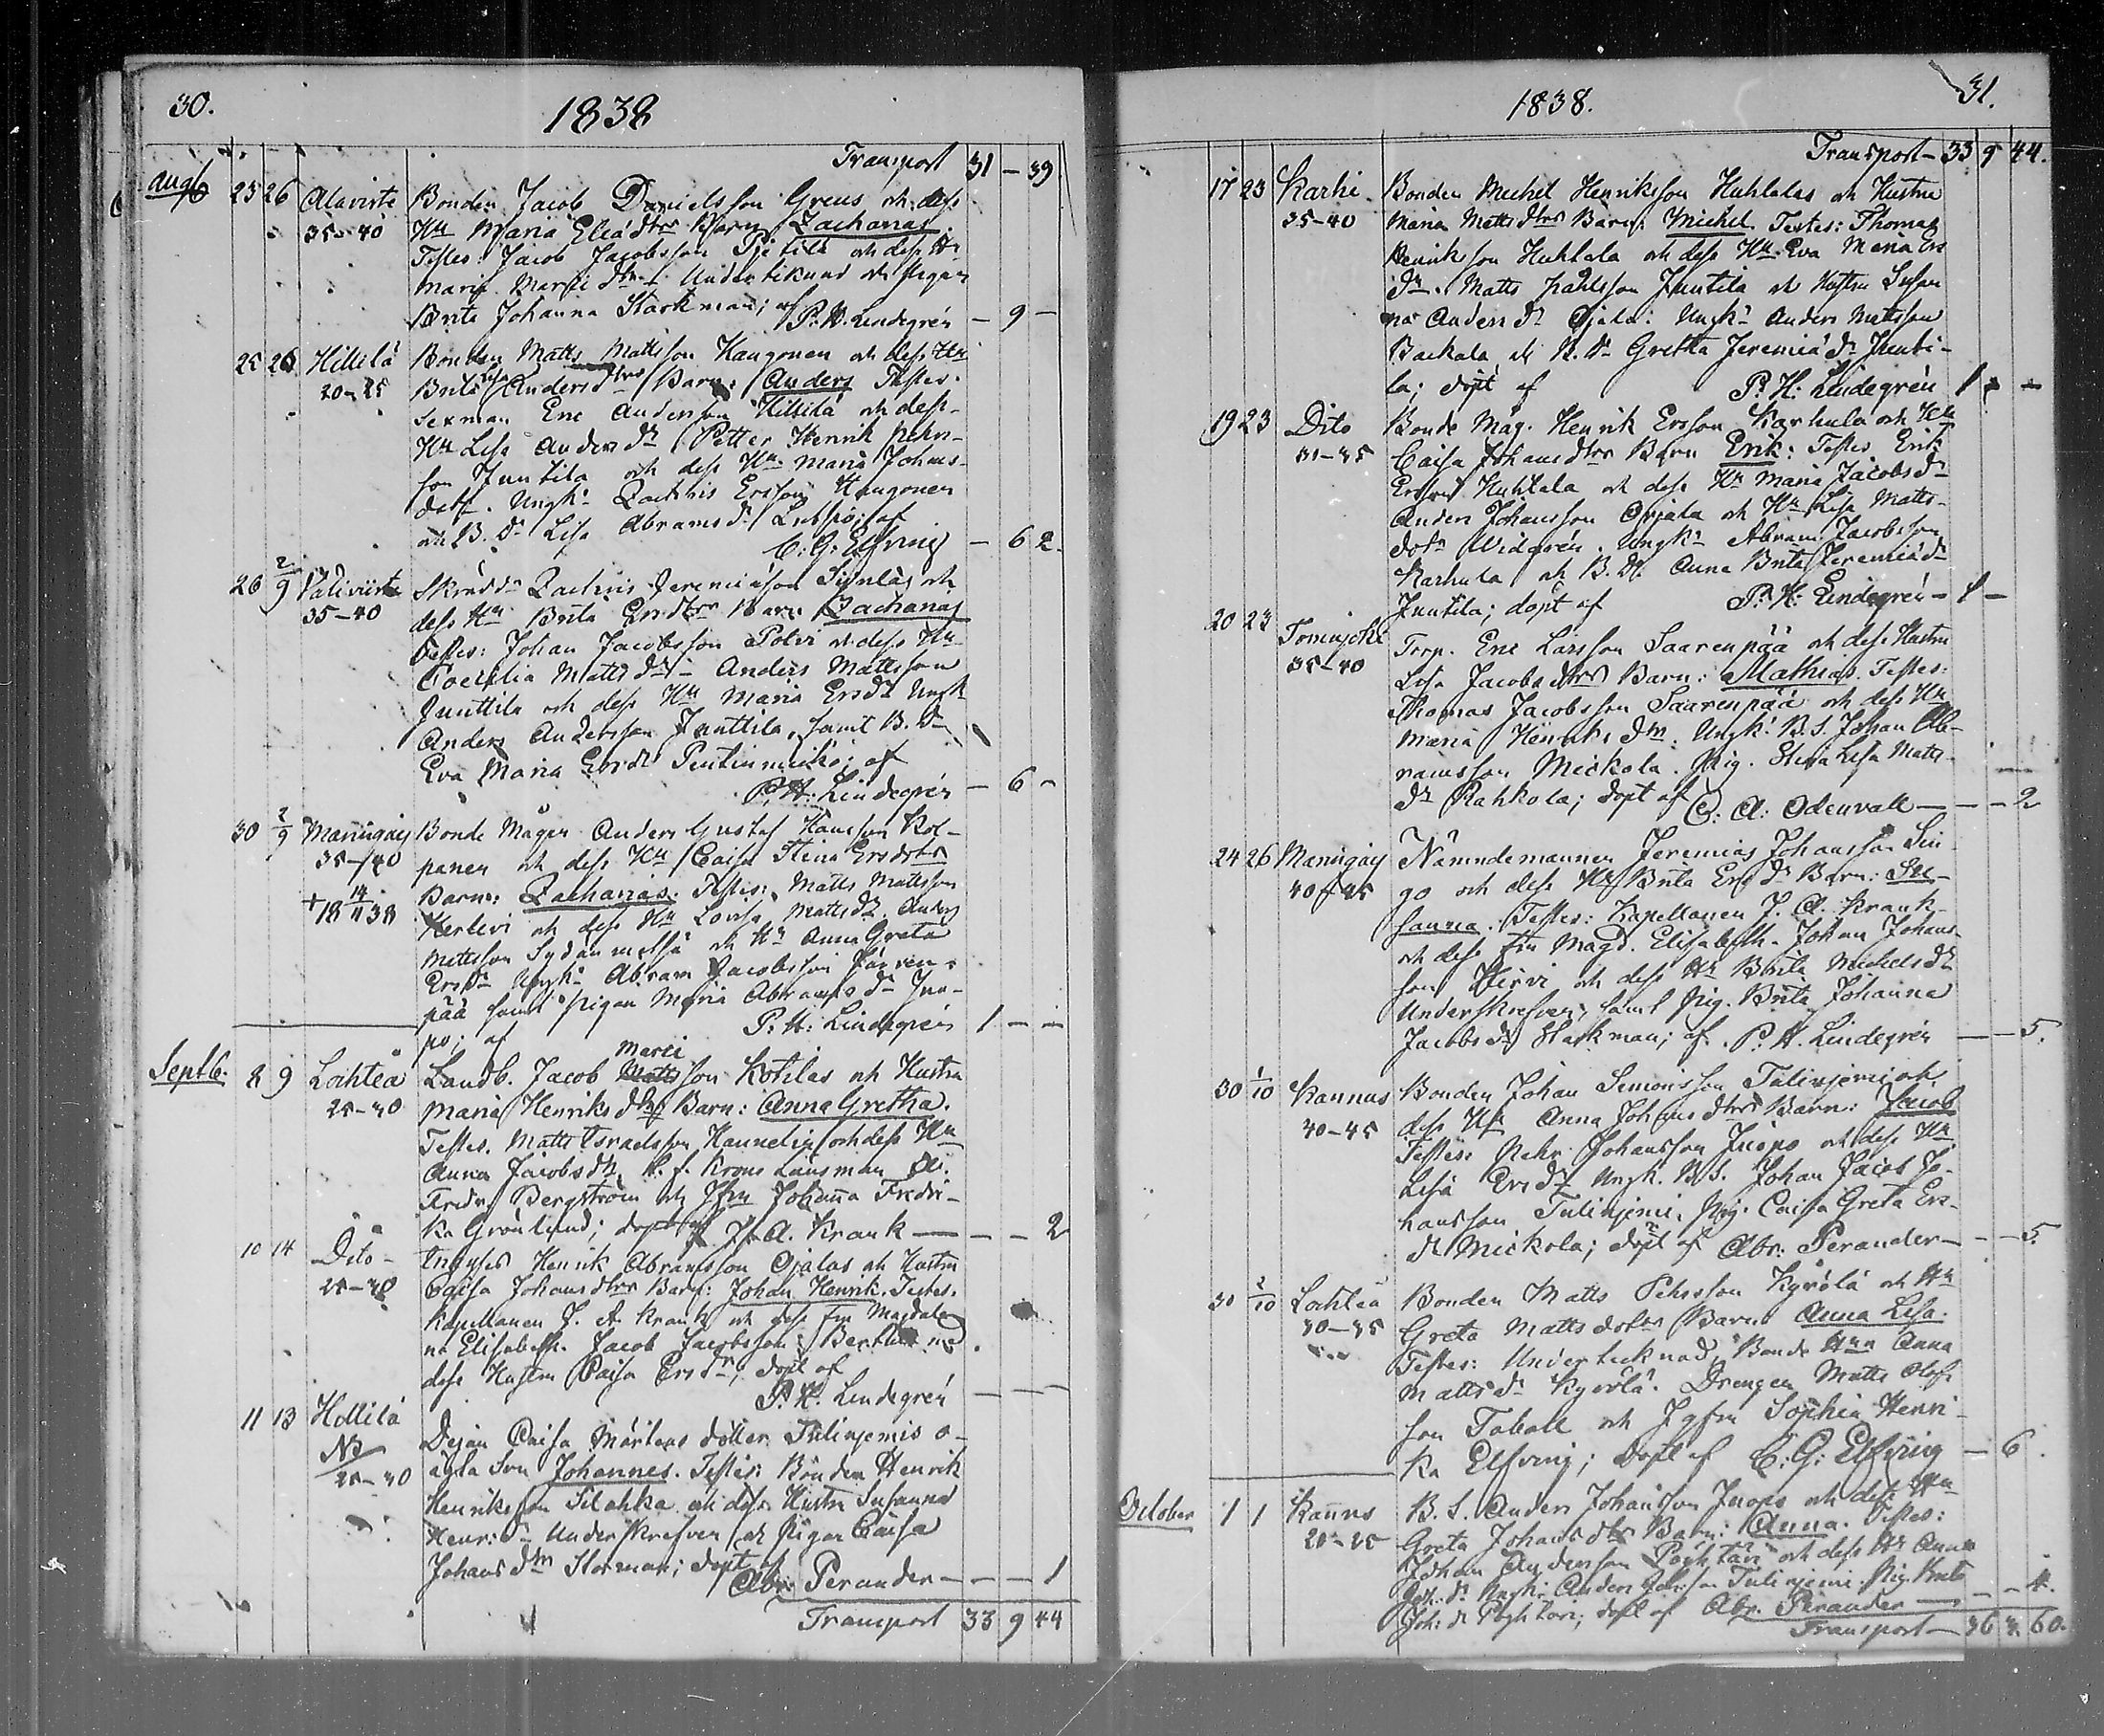 30.
1838
Transport 31 – 39
Aug 25 26 Alaviirte Bonden Jacob Danielsson Greus och dess
35–40 Hu Maria Eliædtrs Barn Zacharias.
Testes: Jacob Jacobsson Tjitilä och dess Hu
Maria Marci dtr. Undertecknad och pigan
Brita Johanna Starkman; af
P. H. Lindegrén – 9 –
25 26 Hillilä Bonden Matts Mattsson Kangonen och dess Hu
20–25 Brita Lisa Andersdtrs Barn: Anders Testes.
Sexman Eric Andersson Hillilä och dess
Hu Lisa Anders dr Petter Henrik Pehrs-
son Juntila och dess Hu Maria Johans-
dotr. Ungk. Zachris Ersson Kangonen
och B. Dr Lisa Abrams dr
C. G. Elfving – 6 2
26 2/9 Väliviirte Zachris Jeremiæson och
35–40 dess Hu Brita Ersdtrs Barn Zacharias
Testes: Johan Jacobsson Poter och dess Hu
Coecilia Mattsdr – Anders Mattsson
Junttila och dess Hu Maria Ersdr Ungk
Anders Andersson Junttila, samt B. Dr
Eva Maria Ersdr af
P. H. Lindegrén – 6 –
30 2/9 Maringais Bonde Mågen Anders Gustaf Hansson Kol-
35–40 panen och dess Hu Caisa Stina Ersdotrs
+ 14/11 1838 Barn: Zacharias. Testes: Matts Mattsson
Herlevi och dess Hu Lovisa Mattsdr. Anders
Mattsson Sydänmetsä och Hu Anna Greta
Ersdr Ungk. Abram Jacobsson Järven-
pää samt pigan Maria Abramsdr Juo-
po; af P. H. Lindegrén 1 – –
Septb. 8 9 Lochteå Landb. Jacob Marci Mattsson Kotilas och Hustru
25–30 Maria Henriks dtrs Barn: Anna Gretha.
Testes. Matts Israelsson Hannelin och dess Hu
Anna Jacobsdr. Krono Länsman
Fredr. Bergström och Jfru Johanna Fredri-
ka Grönlund; döpt af J. A. Krank – – – 2
10 14 Dito – Inhyses Henrik Abramsson Ojalas och Hustru
25–30 Caisa Johansdtrs Barn: Johan Henrik. Testes.
Kapellanen J. A. Krank och dess Fru Magdale-
na Elisabeth. Jacob Jacobsson med
dess Hustru Caisa Ersdr; döpt af
P. H. Lindegrén – – –
11 13 Hillilä Dejan Caisa Mårtens dotter Tulinjemis o-
25–30 ägta Son Johannes. Testes: Bonden Henrik
Henriksson Silahka och dess Hustru Susanna
Henr: dr Underskrefven och Pigan Caisa
Johans dtr Storman; döpt af
Abr. Perander – – – 1
Transport 33 9 44
1838.
31.
Transport – 33 9 44.
17 23 Karhi Bonden Michel Henriksson Huhtalas och Hustru
35–40 Maria Mattsdtrs Barn: Michel. Testes: Thomas
Henriksson Huhtala och dess Hu Eva Maria Ers
dr. Matts Pahlsson Juntila och Hustru Susan
na Anders dr Ojala: Ungk. Anders Mattsson
Backala och B. Dr Gretha Jeremiædr Junti-
la; döpt af P. H. Lindegrén 1 – –
19 23 Dito Bonde Måg. Henrik Ersson Karhula och Hu
30–35 Caisa Johansdtrs Barn Erik: Testes Erik
Ersson Huhtala och dess Hu Maria Jacobsdr
Anders Johansson Orjala och Hu Lisa Matts-
dotr Widgrén. Ungk. Abram Jacobsson
Karhula och B. Dr. Anna Brita Jeremiædr
Juntila; döpt af P. H. Lindegrén – 1 –
20 23 Tomujoki Torp. Eric Larsson Saarenpää och dess Hustru
35–40 Lisa Jacobsdtrs Barn: Mathias. Testes:
Thomas Jacobsson Saarenpää och dess Hu
Maria Henriks dtr. Ungk. B. S. Johan Ab-
ramsson Mickola. Pig. Stina Lisa Matts-
dr Rahkola; döpt af O. A. Odenvall – – – 2
24 26 Maringais Nämndemannen Jeremias Johansson Sin-
40–45 go och dess Hu Brita Ersdr Barn: Su-
sanna. Testes: Kapellanen J. A. Krank
och dess Fru Magd. Elisabeth. Johan Johans-
son Hirvi och dess Hu Brita Michelsdr
Underskrefven, samt Pig. Brita Johanna
Jacobsdr Starkman; af P. H. Lindegrén – – 5.
30 1/10 Kannus Bonden Johan Simonsson Tulinjemi och
40–45 dess Hu Anna Johansdtrs Barn: Jacob
Testes: Pehr Johansson Juopo och dess Hu
Lisa Ersdr Ungk. B.S. Johan Jacob Jo-
hansson Tulinjemi. Pig. Caisa Greta Ers-
dr Mickola; döpt af Abr. Perander – – – 5.
30 2/10 Lochteå Bonden Matts Pehrsson Kyrölä och Hu
30–35 Greta Mattsdotrs Barn Anna Lisa.
Testes: Undertecknad, Bonde Hun Anna
Mattsdr Kyrölä. Drengen Matts Olofs
son Taball och Jgfru Sophia Henri-
ka Elfving; döpt af C. G. Elfving – 6.
October 1 1 Kannus B. S. Anders Johansson Juopo och dess Hu
20–25 Greta Johansdtrs Barn: Anna. Testes:
Johan Andersson och dess Hu Anna
Joh. dr Ungk. Anders Joh:son Tulinjemi. Pig. Brita
Joh: dr döpt af Abr. Perander – – – 4.
Transport – 36 3. 60.